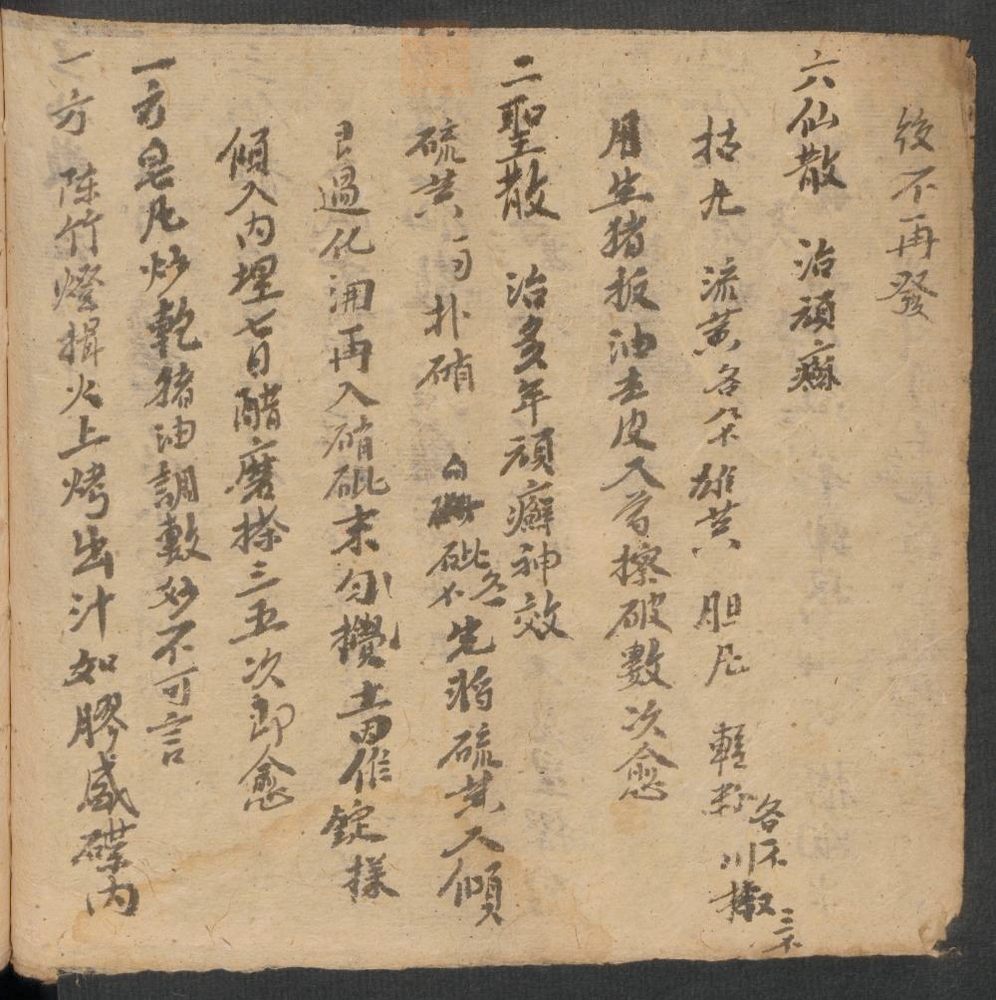 後不再發
六仙散　治頑癬
枯凡　流黃各　雄黃　胆凡　輕粉各　川椒三
用生猪板油去皮入 擦破數次愈
二聖散　治多年頑癬神效
硫黃 朴硝　白砒各 先將硫黃入傾
過化 再入硝砒末勻攪 作錠樣
傾入內埋七日醋磨搽三五次即愈
一方皂凡炒乾猪油調敷妙不可言
一方　陈竹燈揖火上烤出汁如膠盛碟內